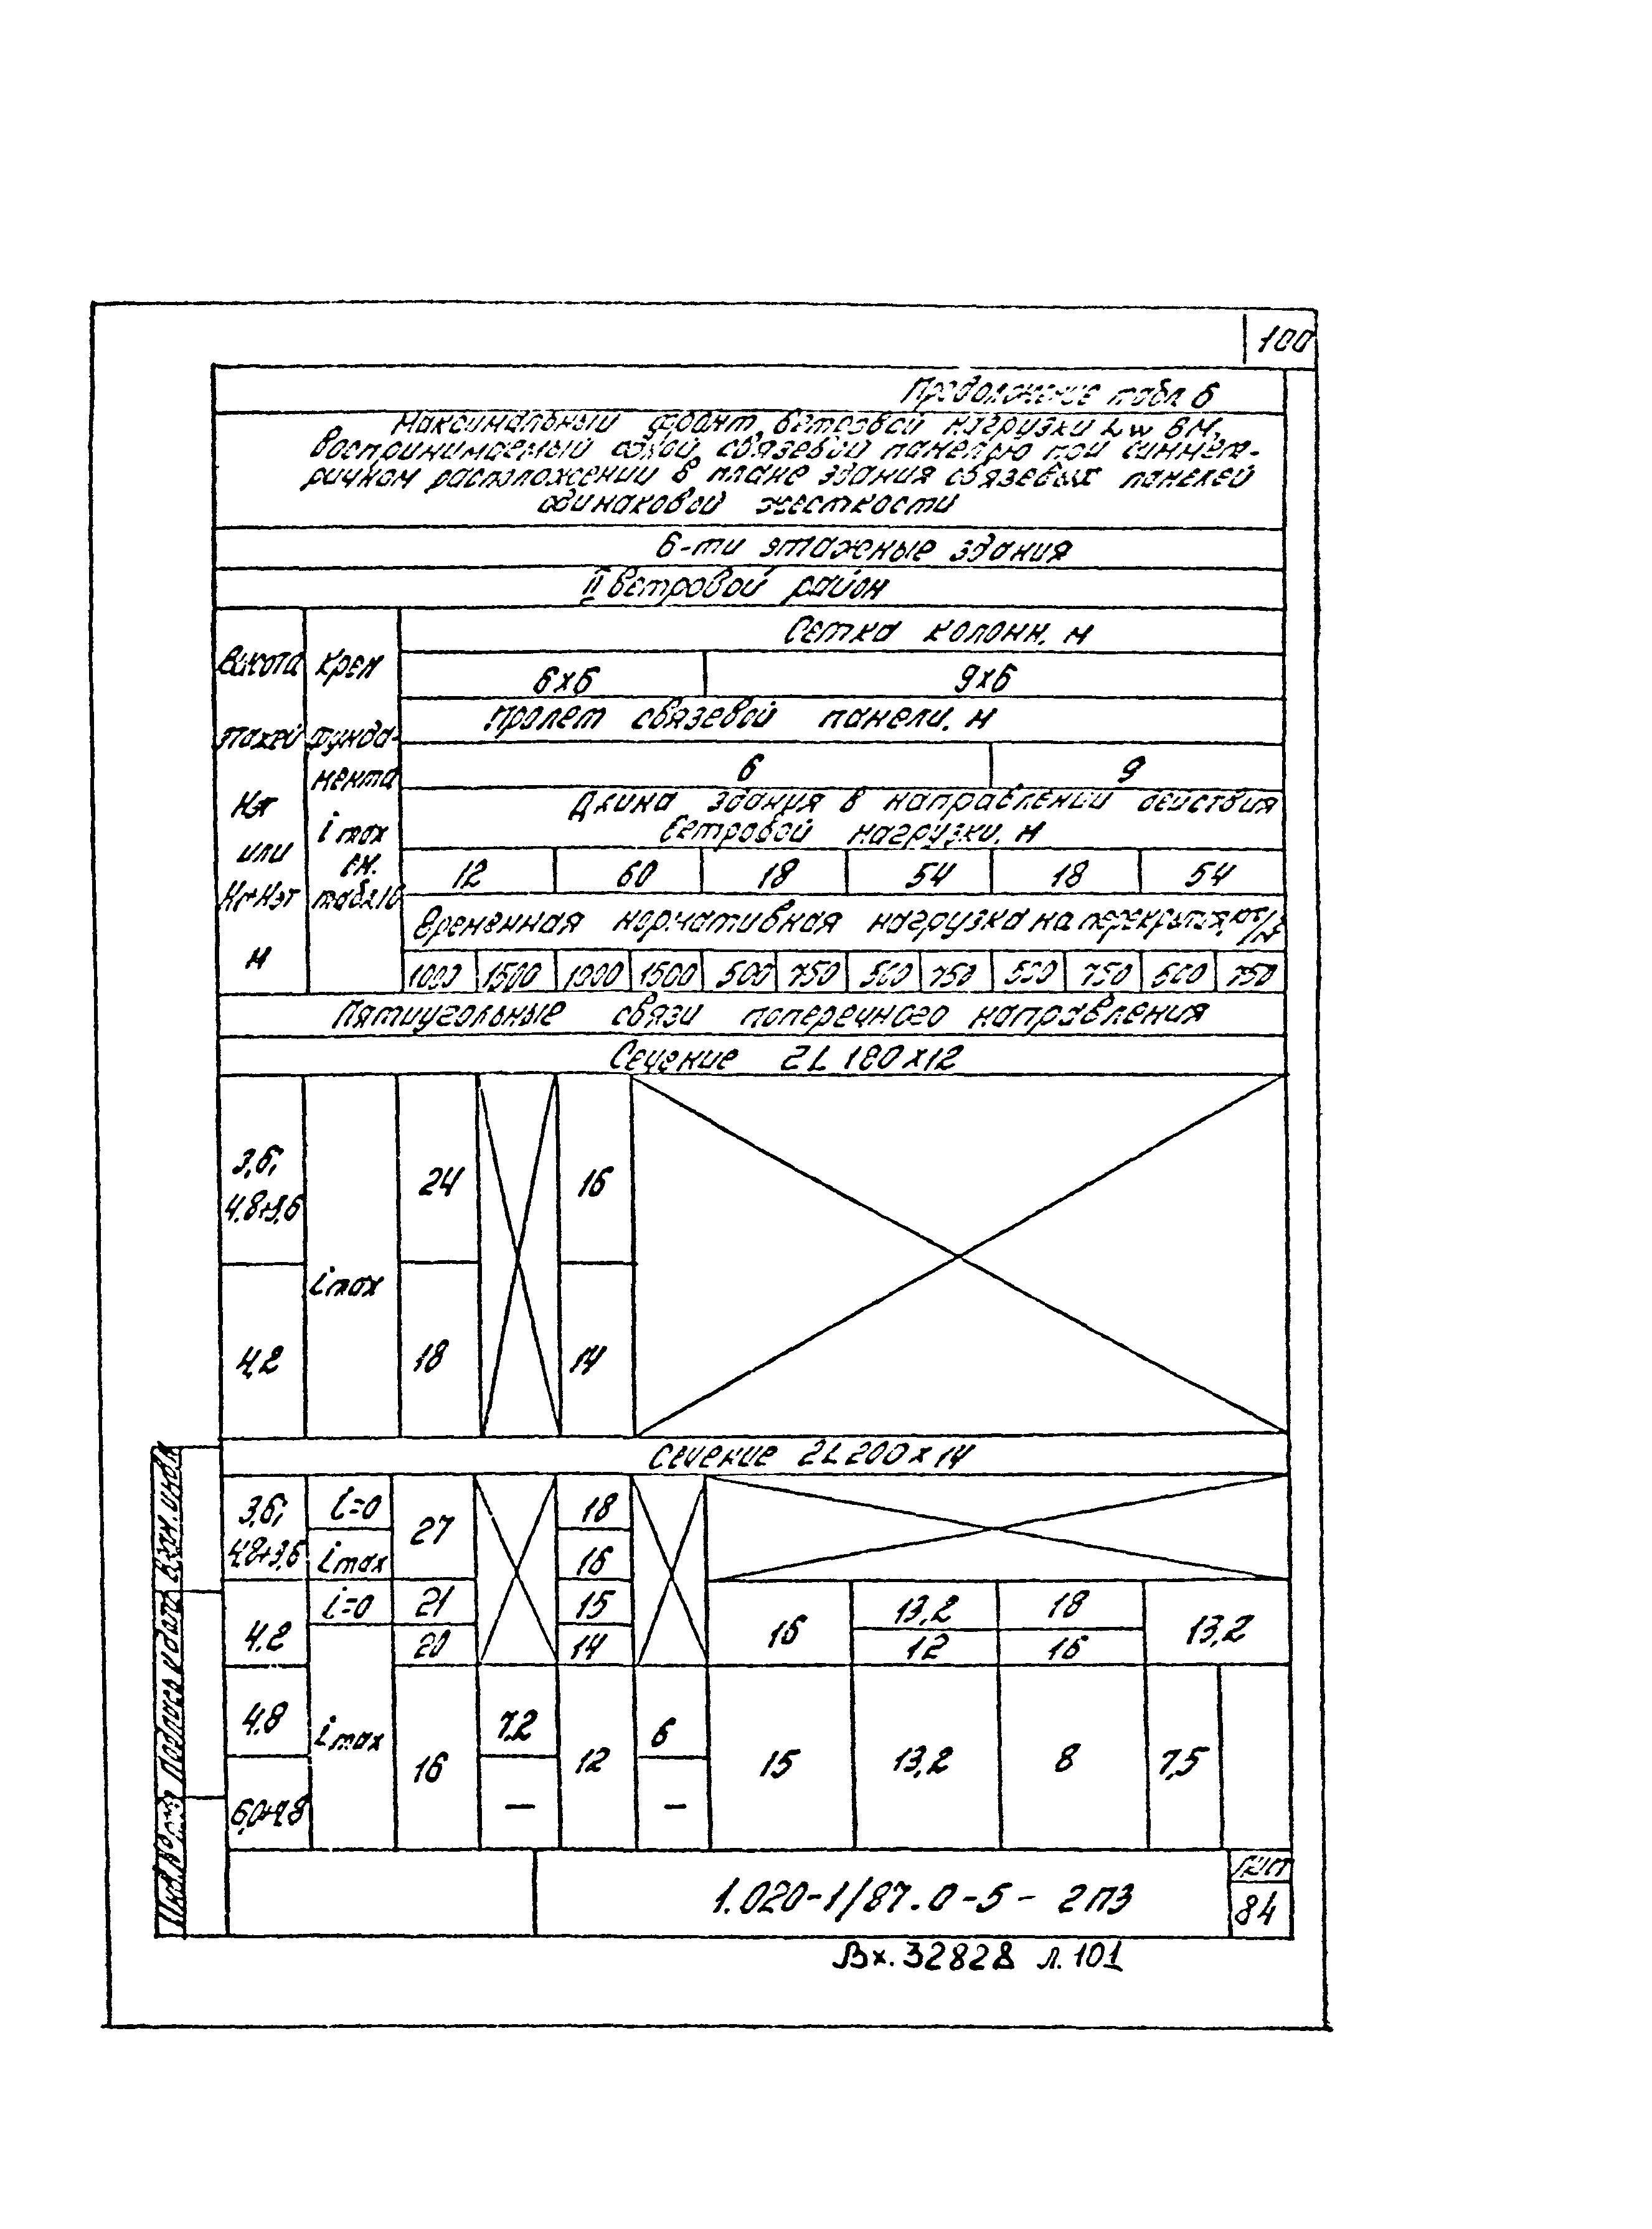 100
Продолжение табл 6
Максимальный фронт ветровой нагрузки Lw в м,
воспринимаемый одной связевой панелью при симмет-
ричном расположении в плане здания связевых панелей
одинаковой жесткости
6-ти этажные здания
II ветровой район
Высота этажей Нэт или Нг+Нэт м
Крен фунда- мента i max см. табл.10
Сетка колонн, м
6x6 9x6
Пролет связевой панели, м
6 9
Длина здания в направлении действия
ветровой нагрузки, м
12 60 18 54 18 54
Временная нормативная нагрузка на перекрытия,
1000 1500 1000 1500 500 750 500 750 500 750 500 750
Пятиугольные связи поперечного направления
Сечение 2L 180x12
3,6;
4,8+3,6
24 16
imax
4,2 18 14
Сечение 2L 200x14
3,6;
4,8+3,6
i=0 27 18
imax 16
4.2 i=0 21 15 16 13,2 18 13,2
20 14 12 16
4.8 imax 16 7.2 12 6 15 13,2 8 7,5
6,0+4.8 — —
1.020-1/87.0-5- 2ПЗ
лист
84
Вх. 32828 л.101
Инв.№ Подпись и дата Взам.инв.№